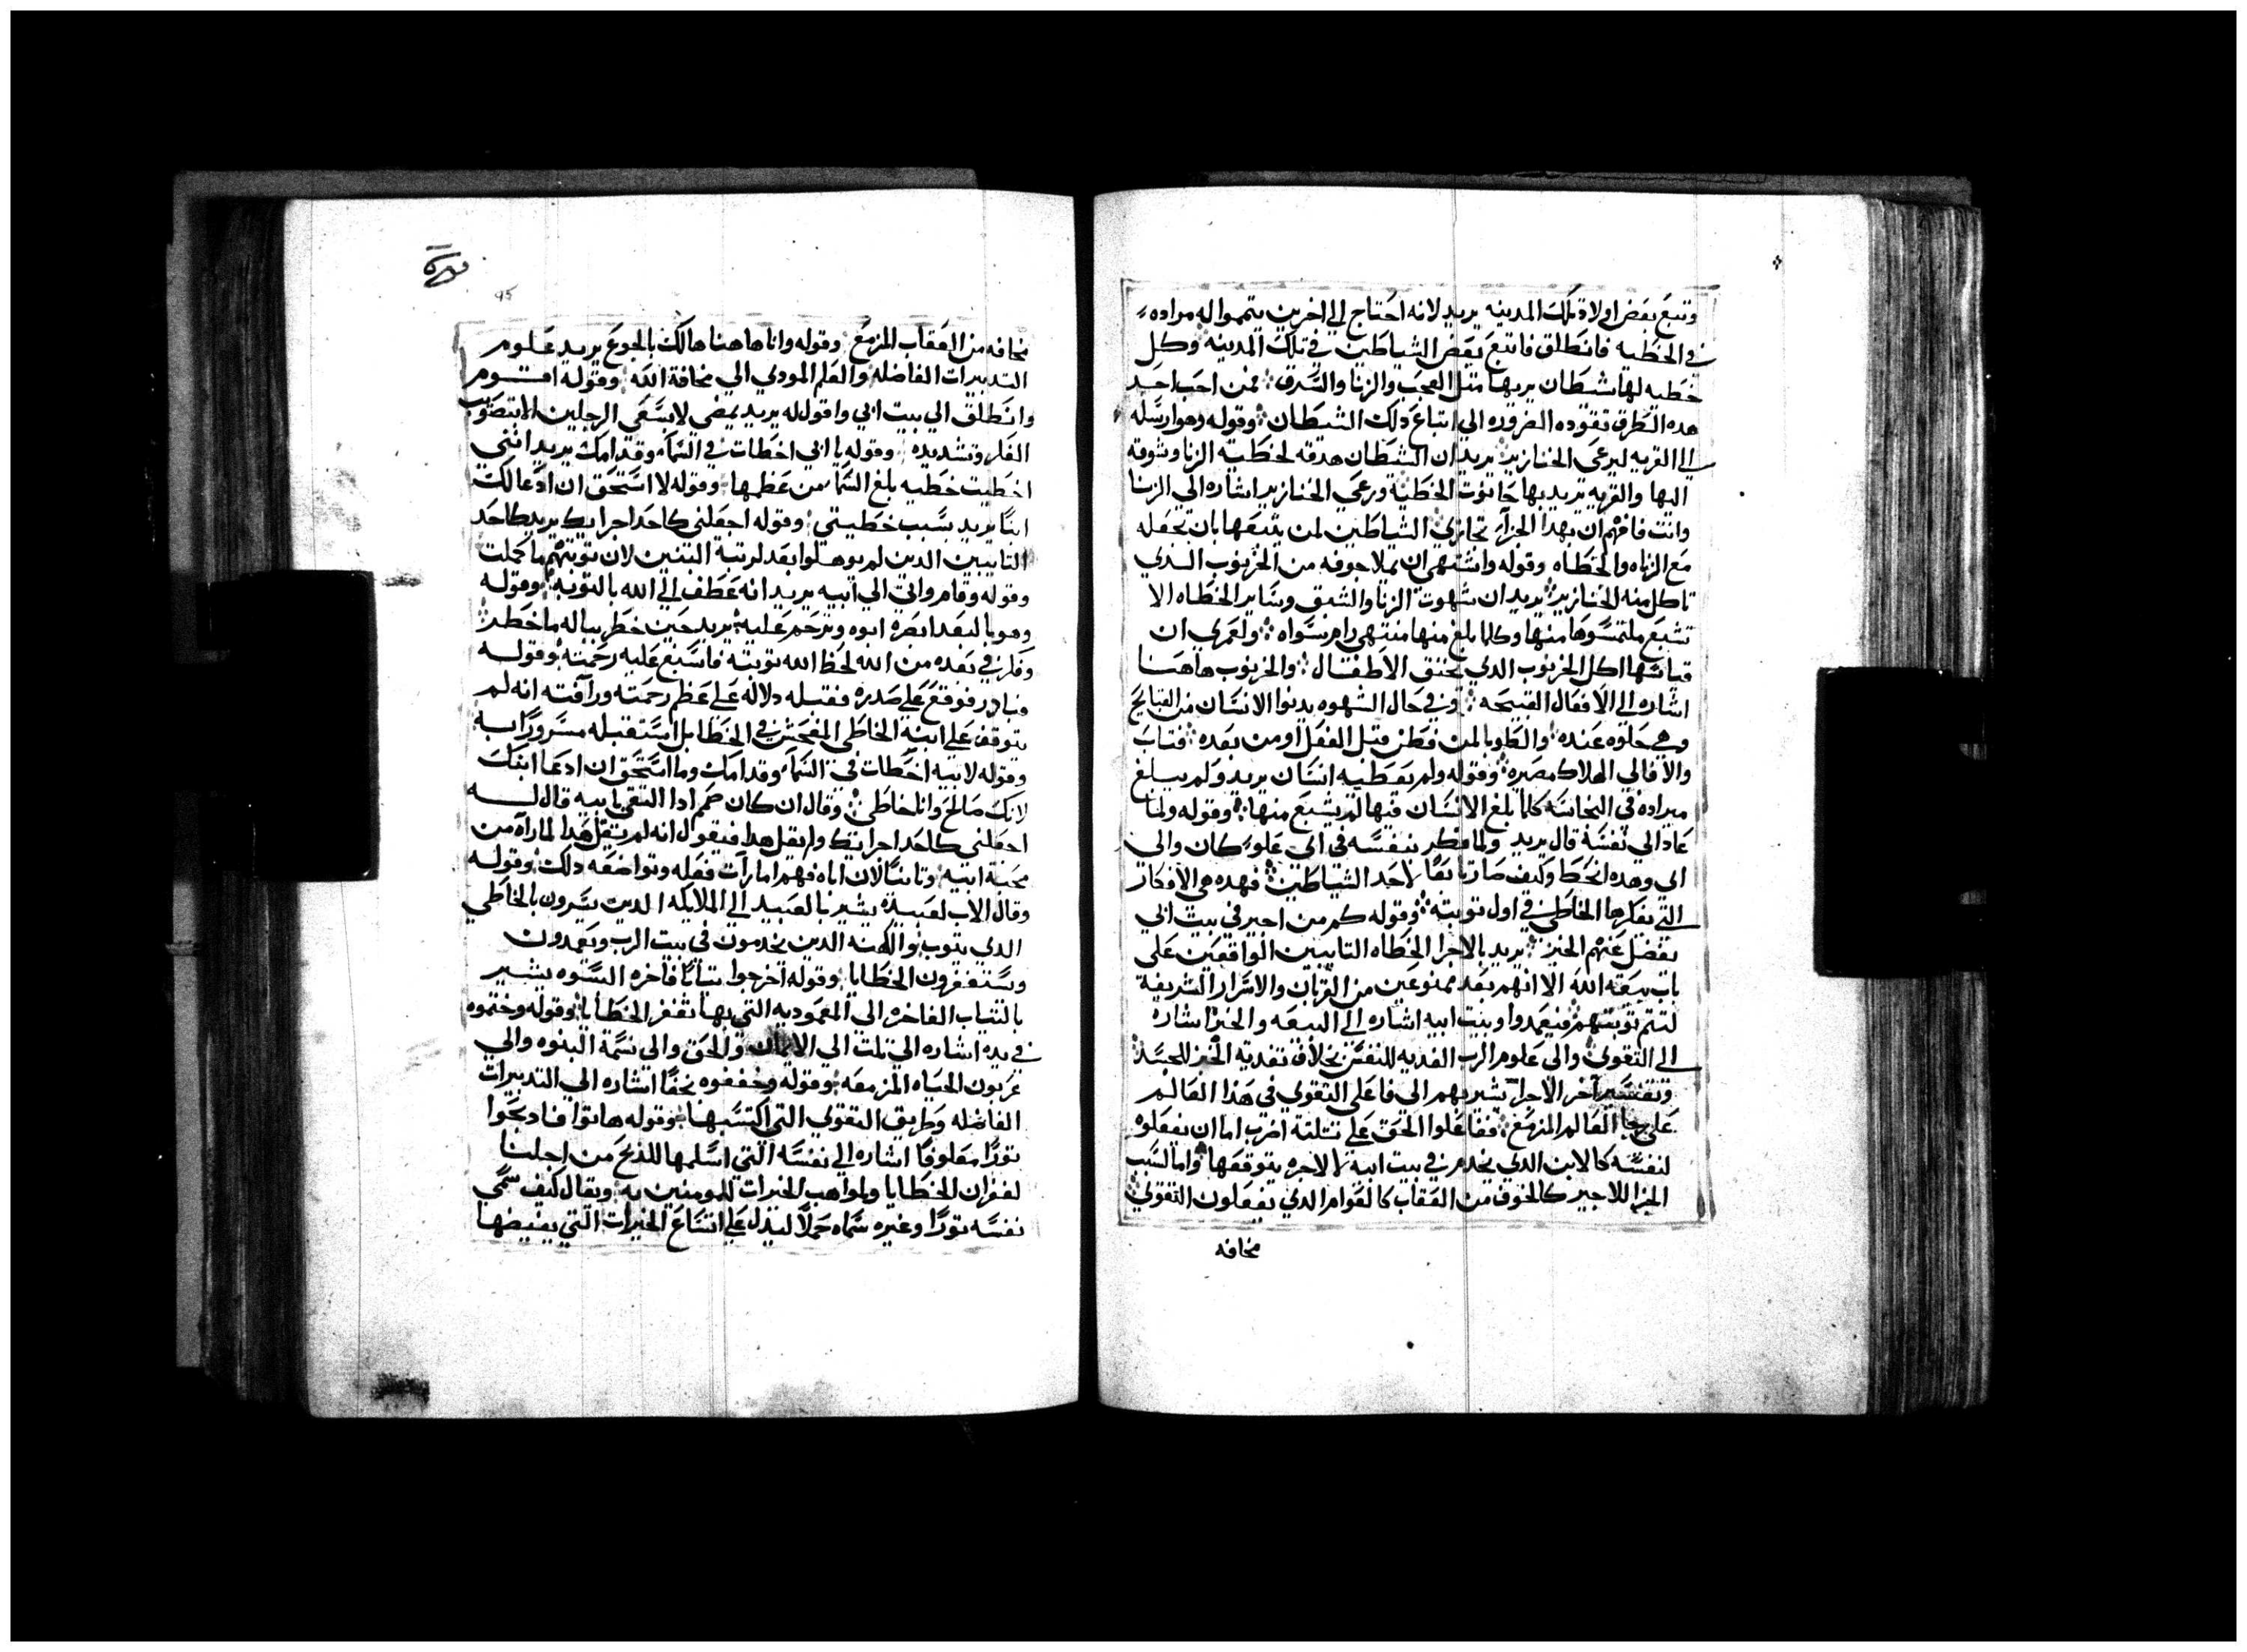 وتبع بعض اولاد تلك المدينه يريد لانه احتاج الي اخرين يتمموا له مراده
في الخطيه فانطلق فاتبع بعض الشياطين في تلك المدينه وكل
خطيه لها شيطان يربها مثل العجب والزنا والسرق فمن احب احد
هده الطرق تقوده الضروره الي اتباع دلك الشيطان وقوله وهو ارسله
الي القريه ليرعي الخنازير يريد ان الشيطان هدقه لخطية الزنا وشوقه
اليها والقريه يريد بها حانوت الخطية ورعي الخنازير اشاره الي الزنا
وانت فافهم ان بهدا الجزآء تجازي الشياطين لمن يتبعها بان تجعله
مع الزناه والخطاه وقوله واشتهي ان يملا جوفه من الخرنوب الدي
تاكل منه الخنازير يريد ان شهوت الزنا والشبق وساير الخطاه الا
تشبع ملتمسوها منها وكلما بلغ منها منتهي رام سواه ولعمري ان
قياسها اكل الخرنوب الدي يخنق الاطفال والخرنوب هاهنا
اشاره الي الافعال القبيحه وفي حال الشهوه يدنوا الانسان من القبايح
وهي حلوه عنده والطوبا لمن فطن قبل الفعل او من بعده فتاب
والا فالي الهلاك مصيره وقوله ولم يعطيه انسان يريد ولم يبلغ
مراده في النجاسه كلما بلغ الانسان فيها لم يشبع منها وقوله ولما
عاد الي نفسه قال يريد ولما فكر بنفسه في اي علو كان والي
اي وهده انحط وكيف صار تابعًا لاحد الشياطين فهده هي الافكار
التي يفكرها الخاطي في اول توبته وقوله كم من اجير في بيت ابي
يفضل عنهم الخبز يريد بالاجرا الخطاه التايبين الواقفين علي
باب بيعة الله الا انهم بعد ممنوعين من القربان والاسرار الشريفة
لتتم توبتهم فيعمدوا وبيت ابيه اشاره الي البيعه والخبز اشاره
الي التقوي والي علوم الرب المغديه للنفس بخلاف تغدية الخبز للجسد
وتفسير آخر الاجرا تشير بهم الي فاعلي التقوي في هذا العالم
علي رجا العالم المزمع ففاعلوا الحق علي تلتة اضرب اما ان يفعلوه
لنفسه كالابن الدي يخدم في بيت ابيه لا لاجره يتوقعها واما لسبب
الجزا للاجير كالخوف من العقاب كالقوام الدي يفعلون التقوي
مخافه
95
مخافه من العقاب المزمع وقوله وانا هاهنا هالك بالجوع يريد علوم
التدبيرات الفاضله والعلم المودي الي مخافة الله وقوله اقوم
وانطلق الي بيت ابي واقول له يريد يمضي لا بسعي الرجلين لا بتصويب
الفكر وتشديده وقوله يا ابي اخطات في السمآء وقدامك يريد انني
اخطيت خطيه بلغ السمآء من عظمها وقوله لا استحق ان ادعا لك
ابنًا يريد بسبب خطيتي وقوله اجعلني كاحد اجرايك يريد كاحد
التايبين الدين لم يوهلوا بعد لرتبة البنين لان توبتهم ما كملت
وقوله وقام واتي الي ابيه يريد انه عطف الي الله بالتوبه وقوله
وهو بالبعد ابصره ابوه وترحم عليه يريد حين خطر بباله ما خطر
وفكر في بعده من الله لحظ الله توبته فاسبغ عليه رحمته وقوله
وبادر فوقع علي صدره فقبله دلاله علي عظم رحمته ورآفته انه لم
يتوقف علي ابنه الخاطي المفحش في الخطا بل استقبله مسرورًا به
وقوله لابيه اخطات في السمآء وقدامك وما استحق ان ادعا ابنك
لانك صالح وانا خاطي وقال ان كان صمم ادا التقي بابيه قال له
اجعلني كاحد اجرايك ولم يقل هدا فيقول انه لم يقل هدا لما رآه من
محبة ابيه وتانيًا لان اباه فهم امارآت فعله وتواضعه دلك وقوله
وقال الاب لعبيده يشير بالعبيد الي الملايكه الدين يسرون بالخاطي
الدي يتوب والكهنه الدين يخدمون في بيت الرب ويعمدون
ويستغفرون الخطايا وقوله اخرجوا تيابًا فاخره البسوه يشير
بالتياب الفاخره الي المعموديه التي بها تغفر الخطايا وقوله وختموه
في يده اشاره الي تلت الي الايمان والحق والي نسمة البنوه والي
عربون الحياه المزمعه وقوله وخففوه خفًا اشاره الي التدبيرات
الفاضله وطريق التقوي التي اكتسبها وقوله هاتوا فادبحوا
تورًا معلوفًا اشاره الي نفسه التي اسلمها للدبح من اجلنا
لغفران الخطايا ولمواهب الخيرات للمومنين به ويقال كيف سمي
نفسه تورًا وغيره سماه حملاً ليدل علي اتساع الخيرات التي يفيضها